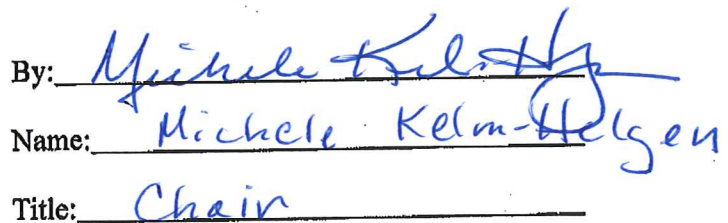 By: Michele Kelm-Helgen
Name: Michele Kelm-Helgen
Title: Chair